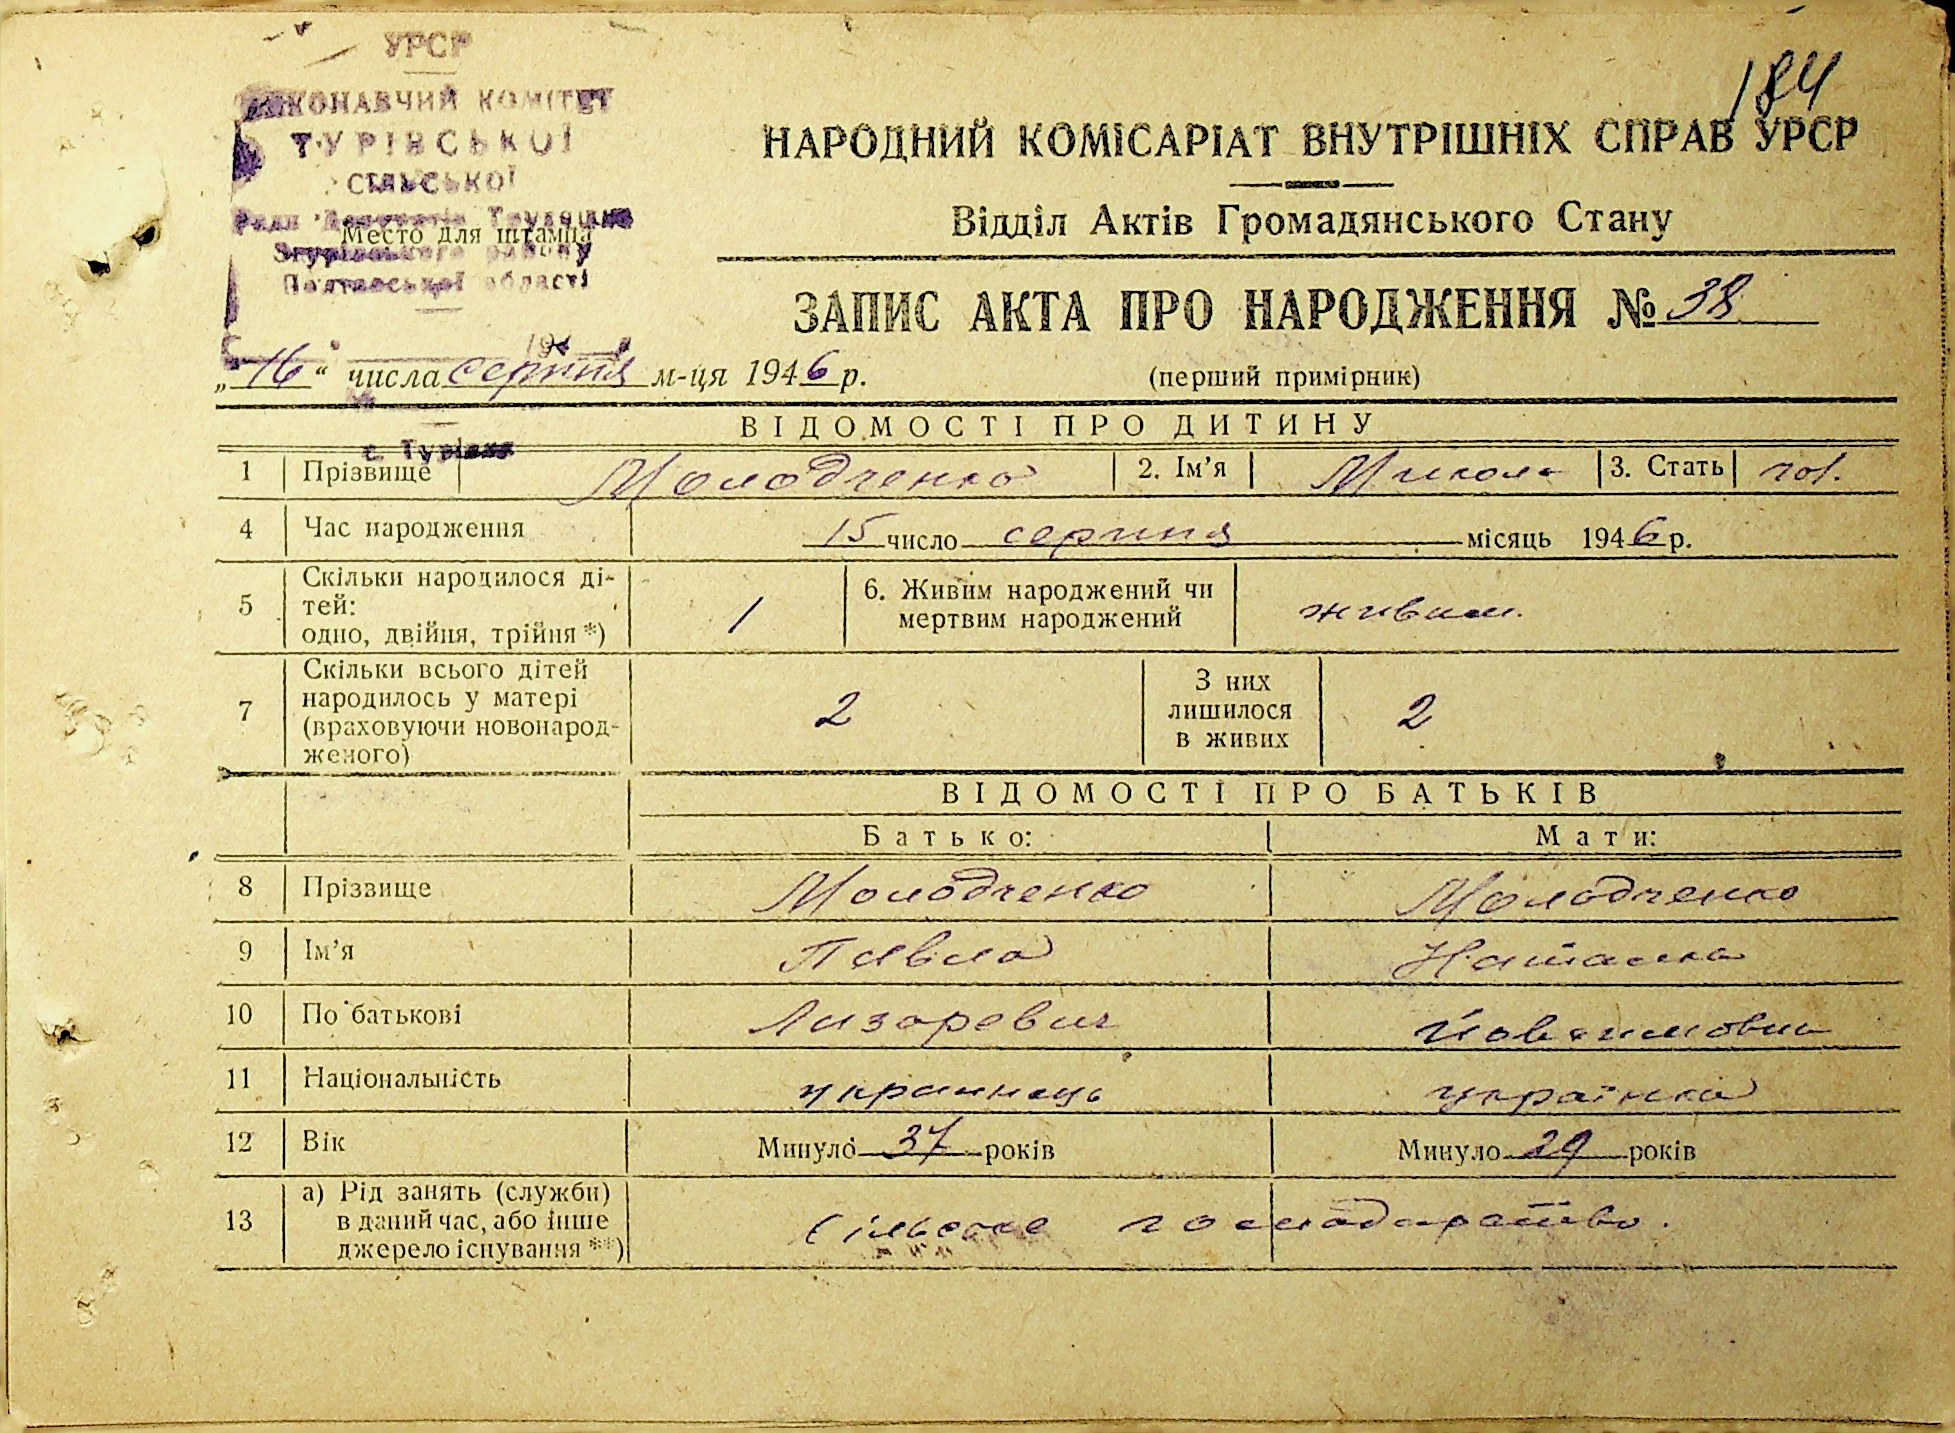 184
УРСР
ВИКОНАВЧИЙ КОМІТЕТ
ТУРІВСЬКОЇ
СІЛЬСЬКОЇ
Ради Депутатів Трудящих
Место для штампа
Згурівського району
Полтавської області
194
с. Турівка
НАРОДНИЙ КОМІСАРІАТ ВНУТРІШНІХ СПРАВ УРСР
Відділ Актів Громадянського Стану
ЗАПИС АКТА ПРО НАРОДЖЕННЯ № 38
„16“ числа серпня м-ця 1946 р.
(перший примірник)
ВІДОМОСТІ ПРО ДИТИНУ
1 Прізвище Молодченко 2. Ім’я Микола 3. Стать чол.
4 Час народження 15 число серпня місяць 1946 р.
5 Скільки народилося ді-
тей:
одно, двійня, трійня *) 1 6. Живим народжений чи
мертвим народжений живим.
7 Скільки всього дітей
народилось у матері
(враховуючи новонарод-
женого) 2 З них
лишилося
в живих 2
ВІДОМОСТІ ПРО БАТЬКІВ
Батько: Мати:
8 Прізвище Молодченко Молодченко
9 Ім’я Павло Наталка
10 По батькові Лазоревич
11 Національність українець українка
12 Вік Минуло 37 років Минуло 29 років
13 а) Рід занять (служби)
в даний час, або інше
джерело існування **) сільське господарство.